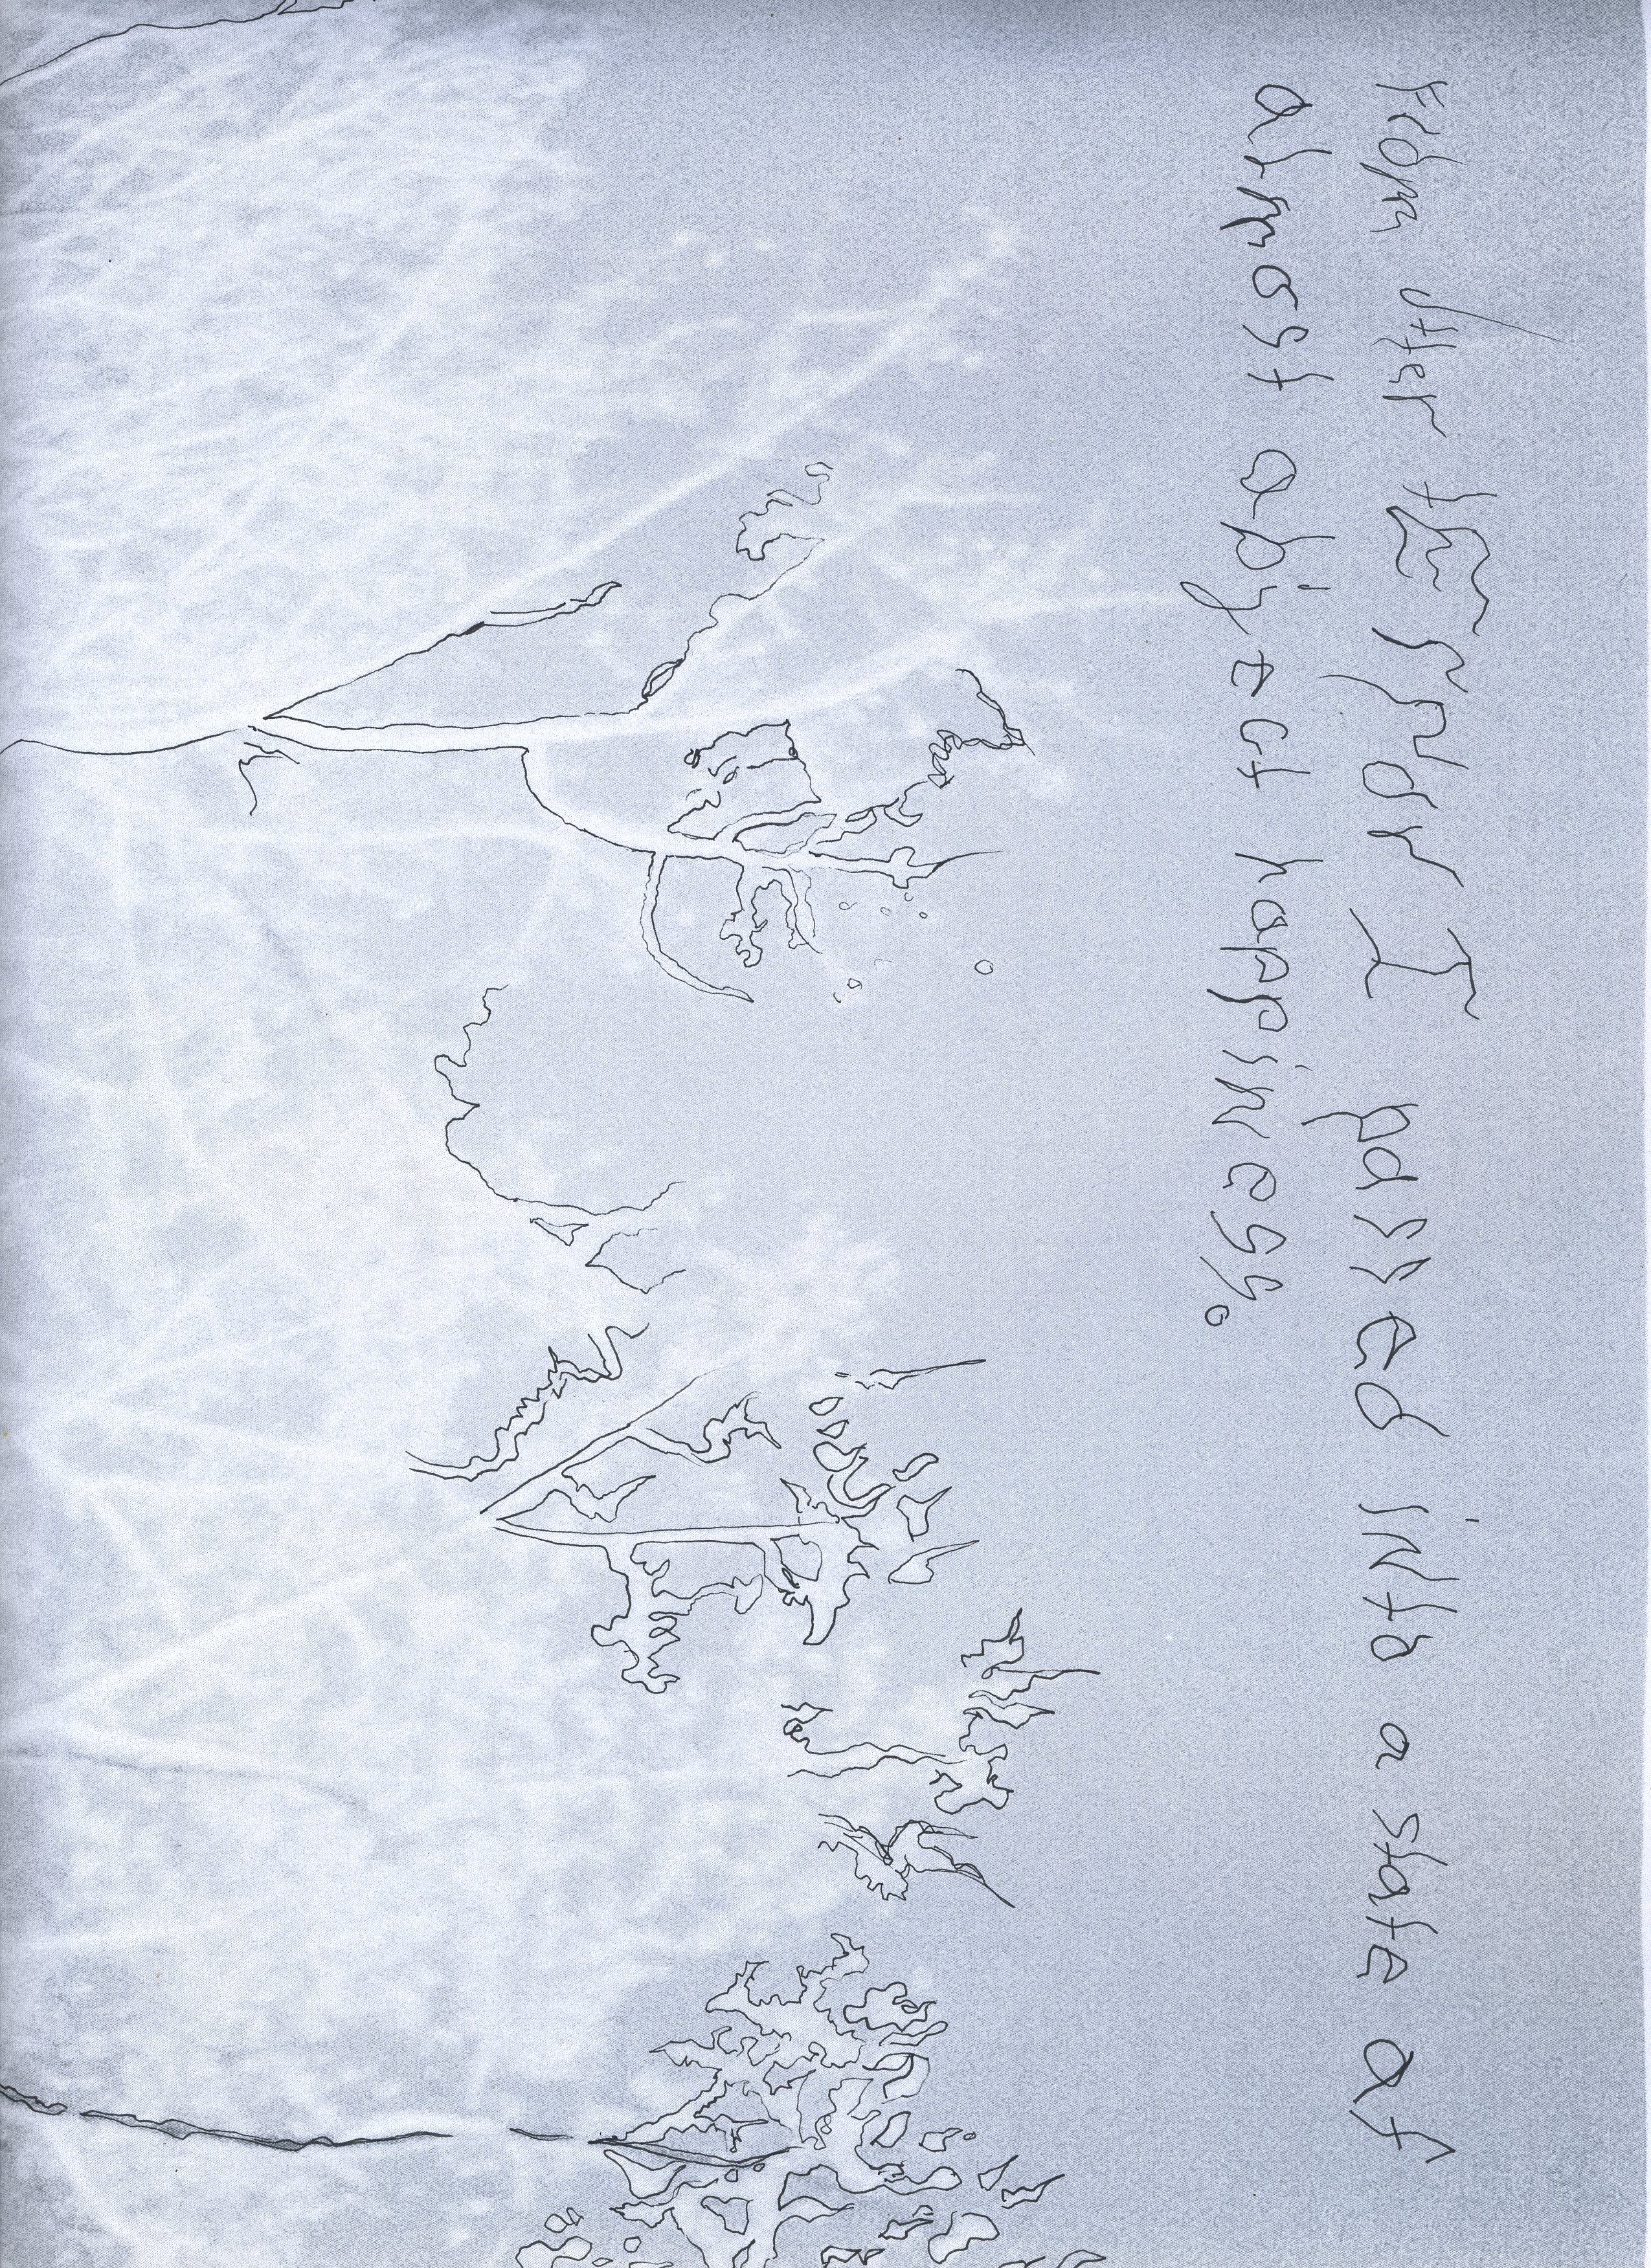 From utter terror I passed into a state of
almost abject happiness.